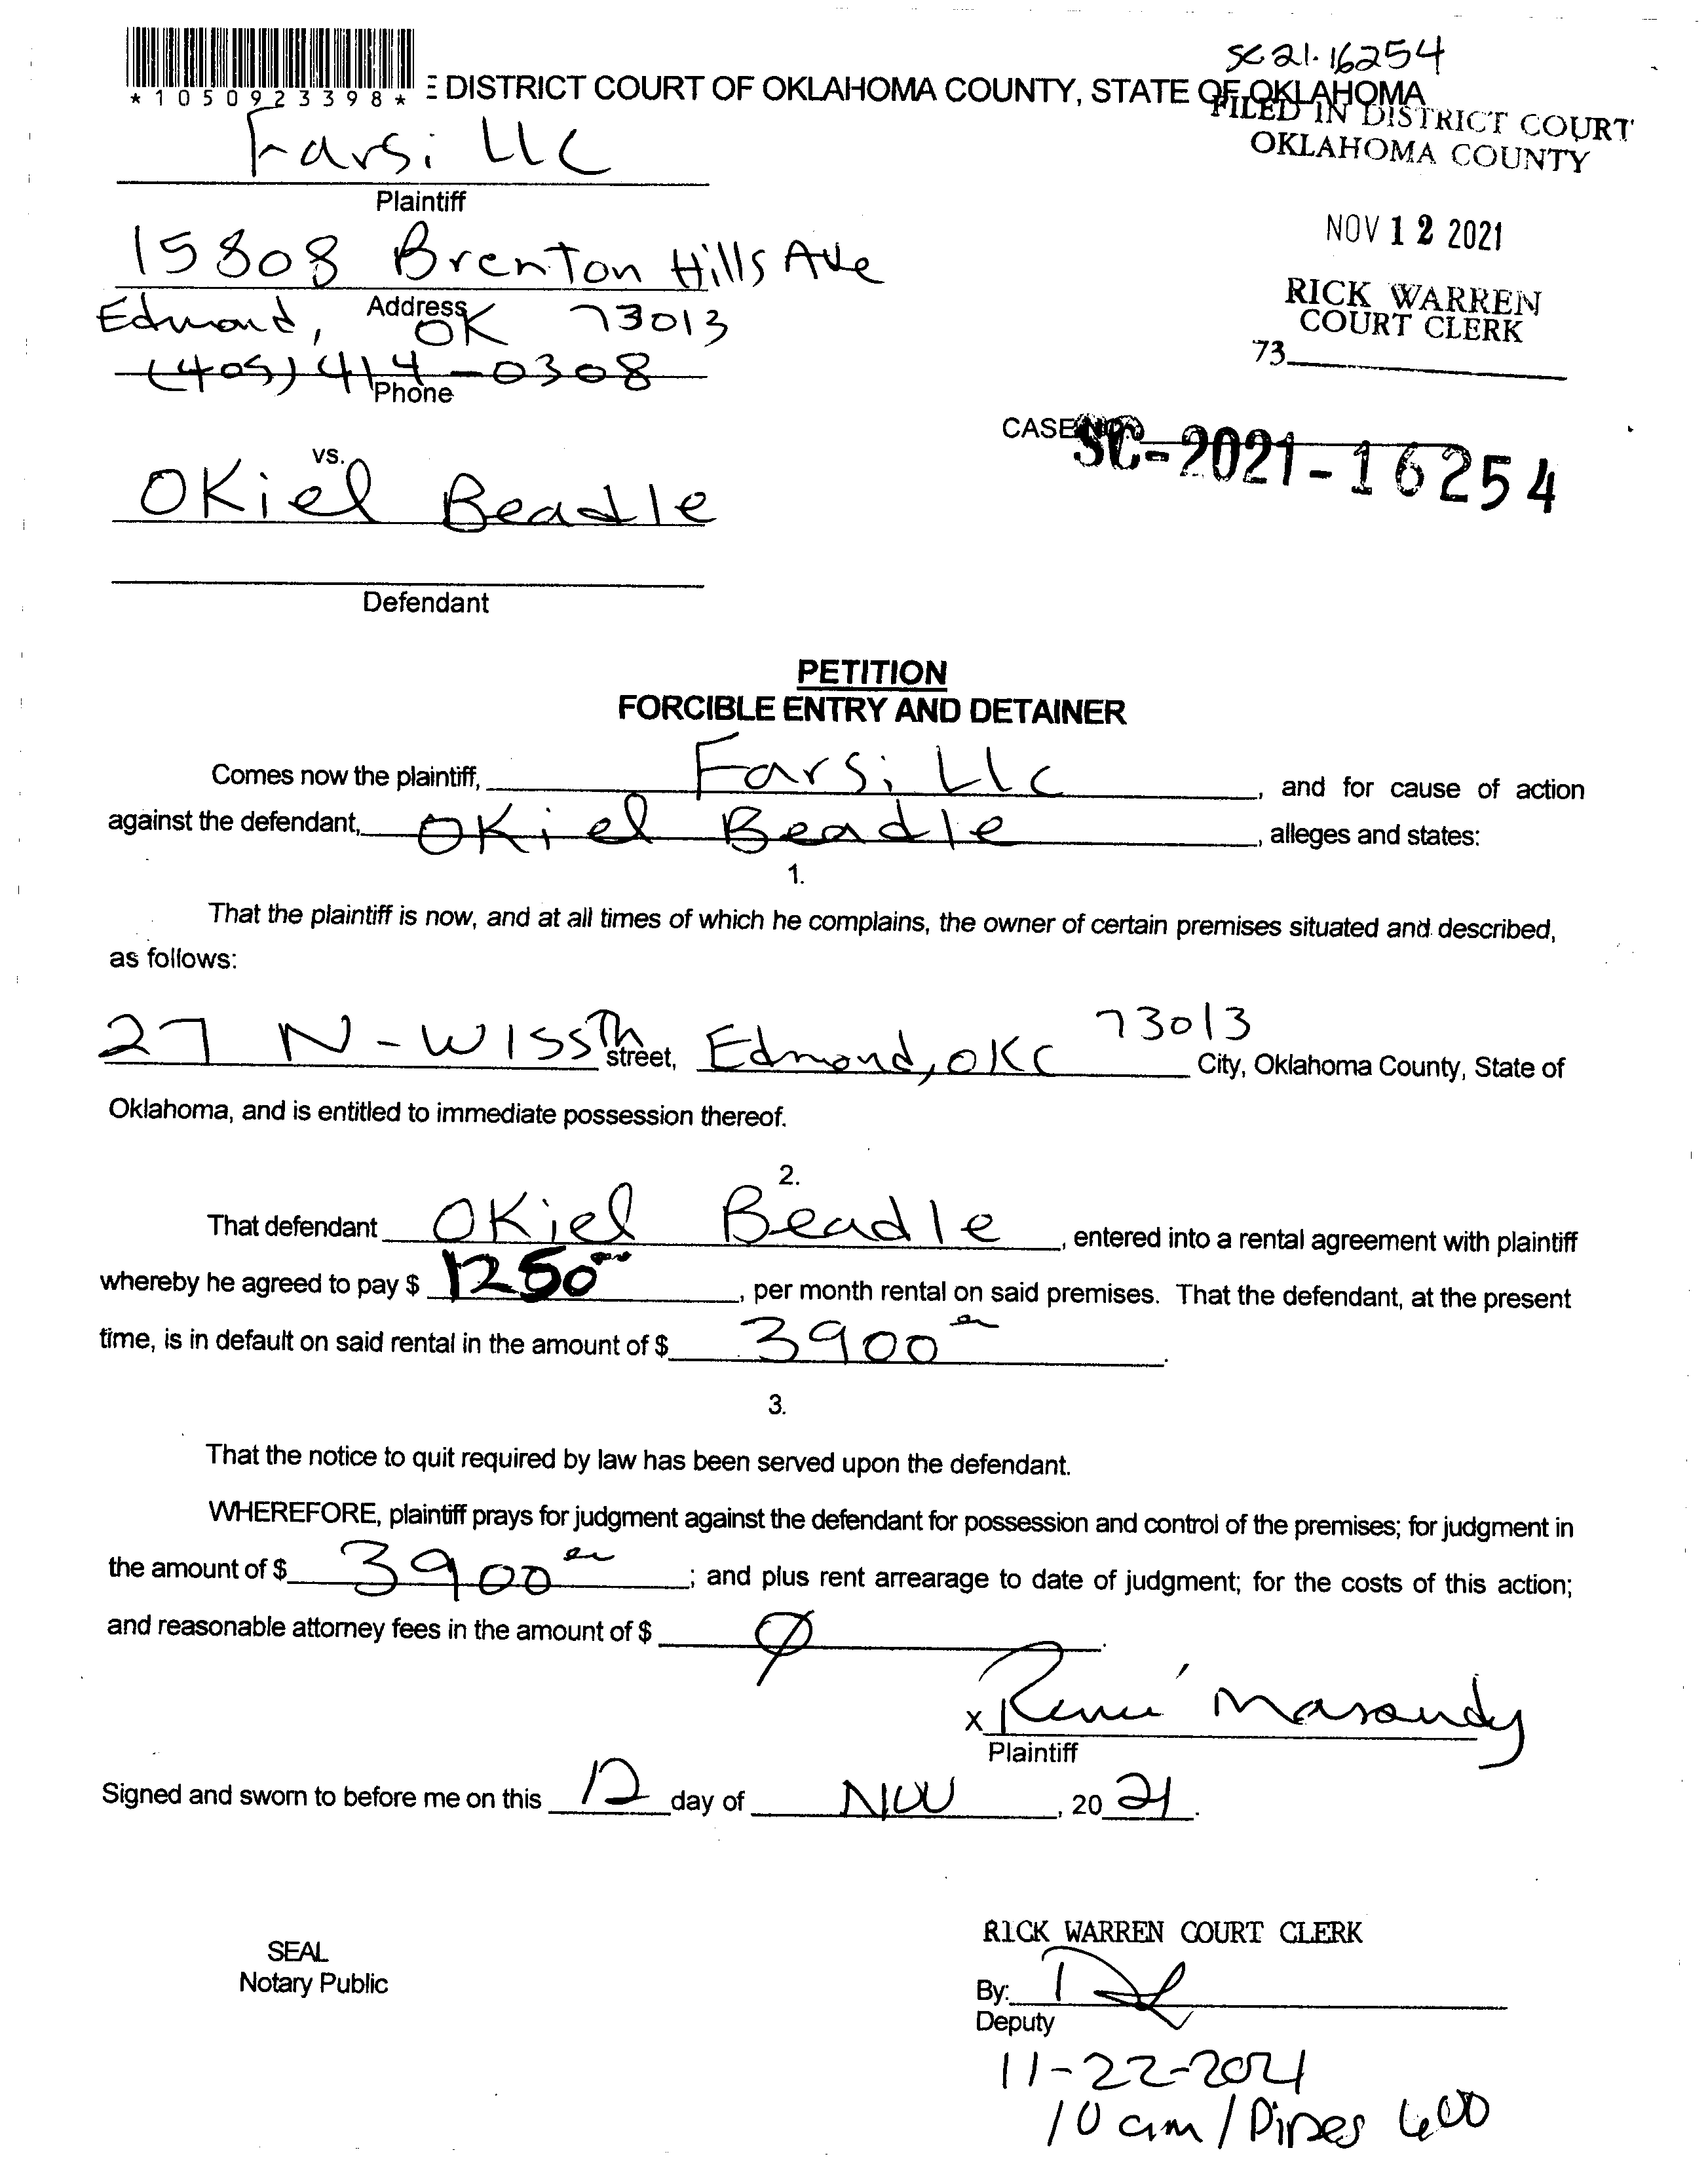 SC21-16254
*1050923398* E DISTRICT COURT OF OKLAHOMA COUNTY, STATE OF OKLAHOMA
FILED IN DISTRICT COURT
OKLAHOMA COUNTY
Farsi LLC
Plaintiff
NOV 12 2021
15808 Brenton Hills Ave
Address
RICK WARREN
COURT CLERK
Edmond, OK 73013
73
(405) 414-0308
Phone
CASE NO. SC-2021-16254
vs.
OKiel Beadle
Defendant
PETITION
FORCIBLE ENTRY AND DETAINER
Comes now the plaintiff, Farsi LLC, and for cause of action
against the defendant, OKiel Beadle, alleges and states:
1.
That the plaintiff is now, and at all times of which he complains, the owner of certain premises situated and described,
as follows:
27 N-W 155Th street, Edmond, OKC 73013 City, Oklahoma County, State of
Oklahoma, and is entitled to immediate possession thereof.
2.
That defendant OKiel Beadle, entered into a rental agreement with plaintiff
whereby he agreed to pay $ 1250, per month rental on said premises. That the defendant, at the present
time, is in default on said rental in the amount of $ 3900.
3.
That the notice to quit required by law has been served upon the defendant.
WHEREFORE, plaintiff prays for judgment against the defendant for possession and control of the premises; for judgment in
the amount of $ 3900; and plus rent arrearage to date of judgment; for the costs of this action;
and reasonable attorney fees in the amount of $ Ø.
x
Plaintiff
Signed and sworn to before me on this 12 day of Nov, 2021.
RICK WARREN COURT CLERK
SEAL
Notary Public
By:
Deputy
11-22-2021
10 am / Pipes 600